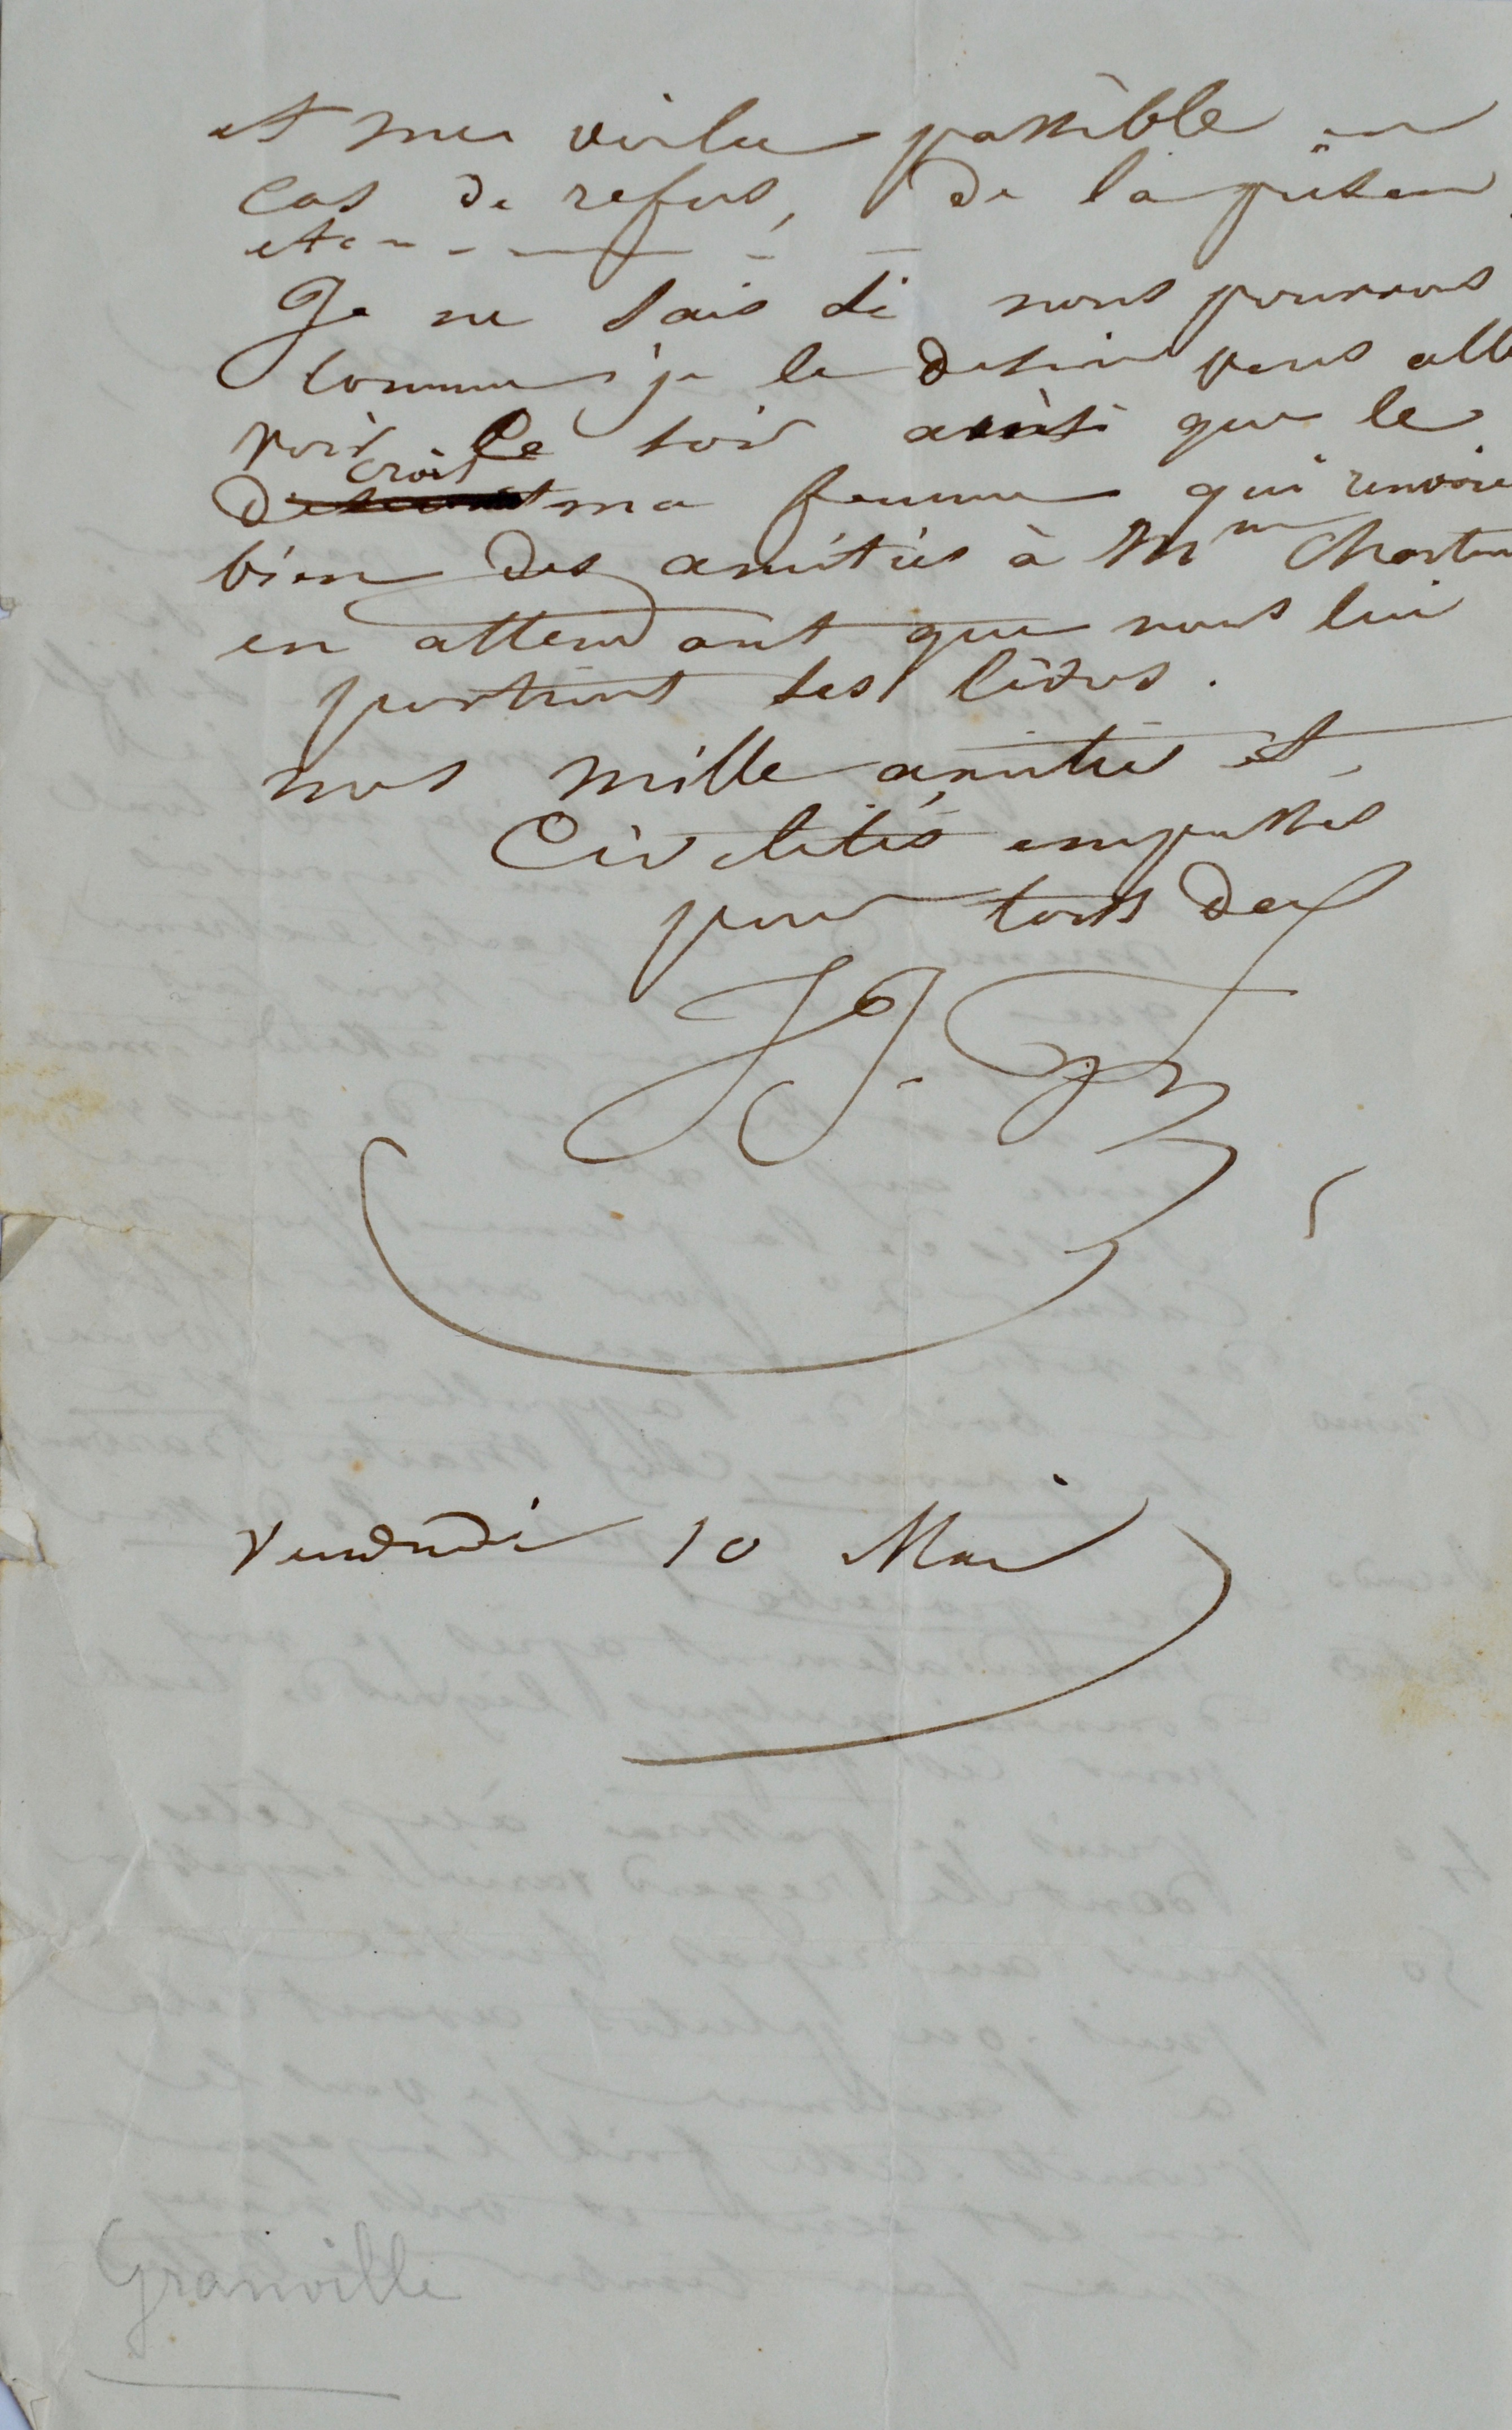 et me voila passible en
cas de refus, de la prison
etc - - - -
Je ne sais si nous pourrons
comme je le desire vous all
voir ce soir ainsi que le
croit ma femme qui renvoie
bien des amitiés à Mme
en attendant que nous lui
portions ses livres.
nos mille amitiés et
Civilités empressées
pour tous deux
Vendredi 10 Mai
Granville